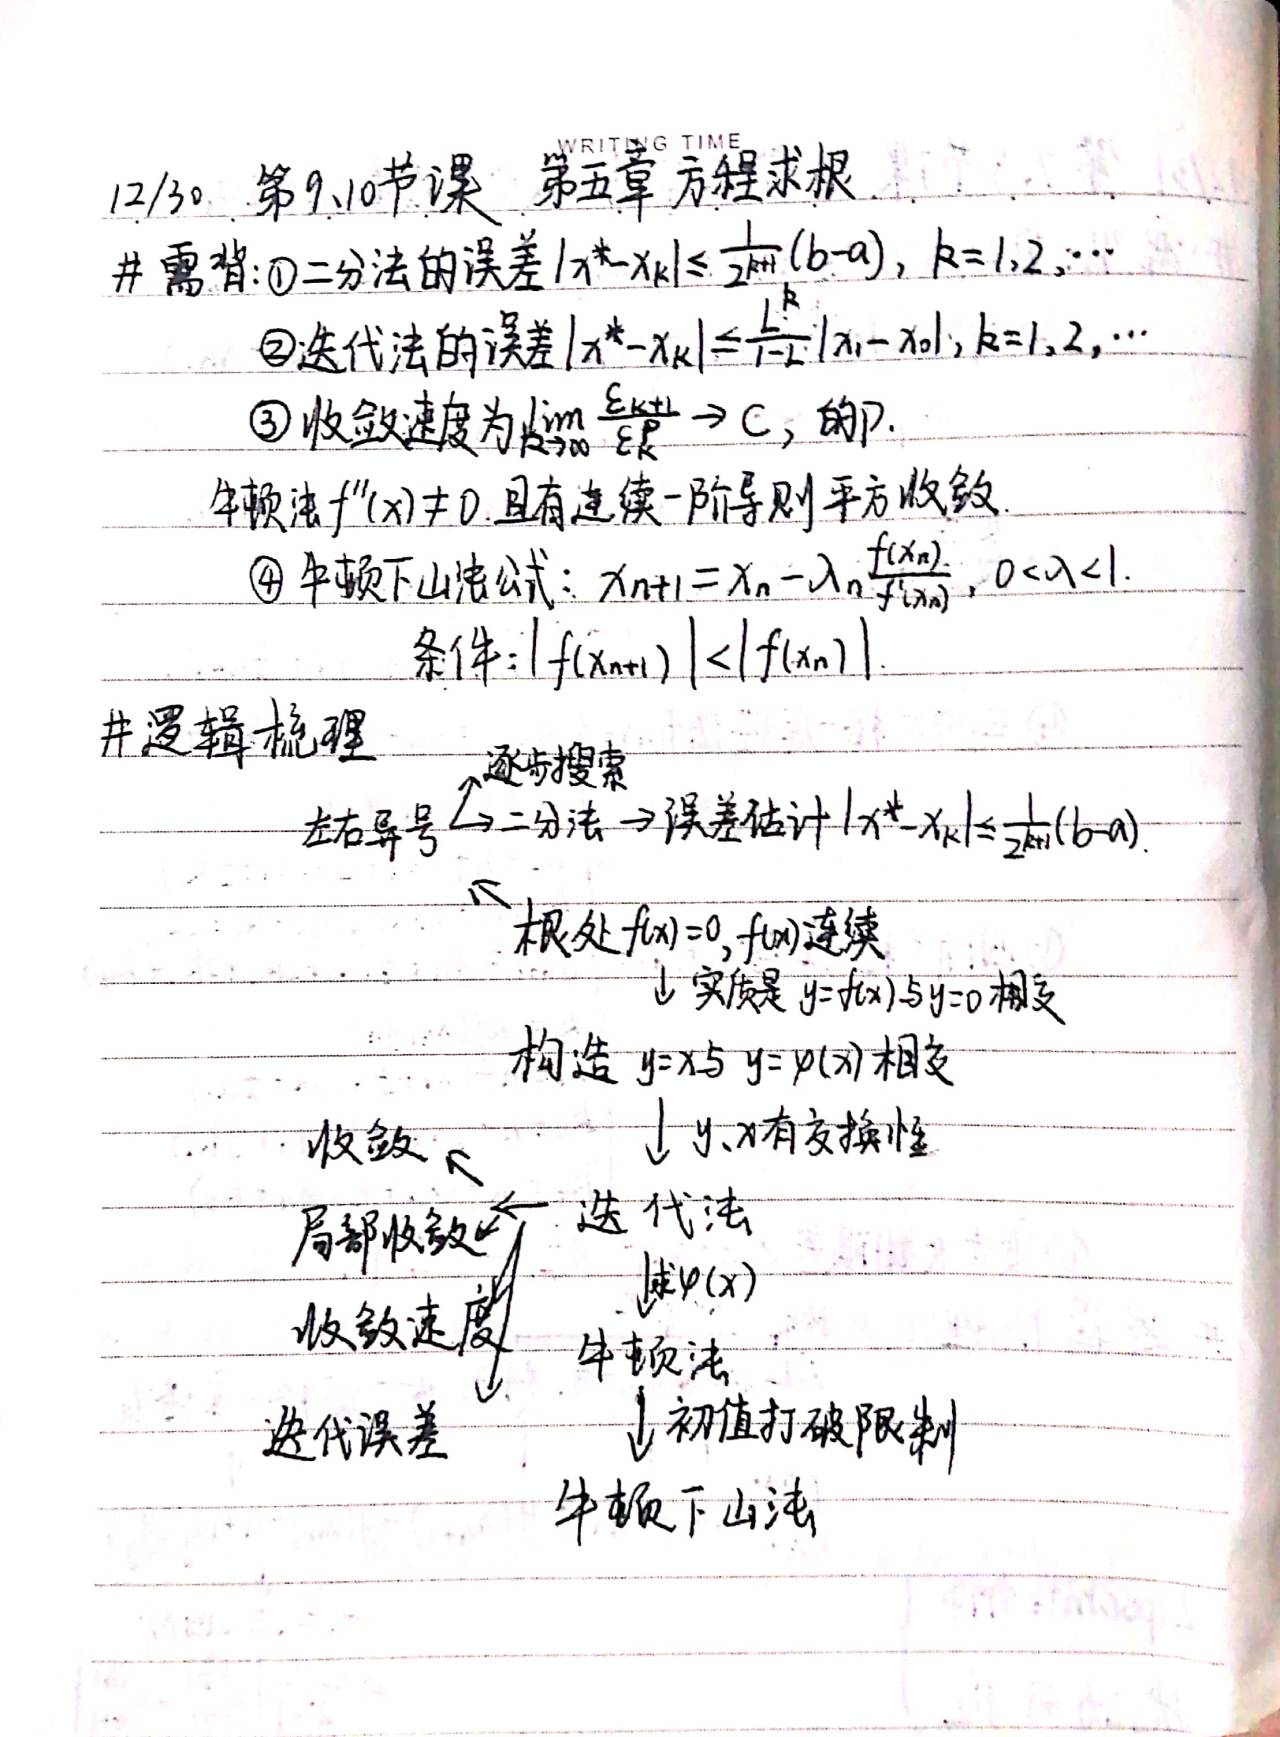 WRITING TIME
12/30 第9、10节课 第五章 方程求根
# 需背:①二分法的误差|x*-xₖ|≤1/2ᵏ⁺¹(b-a), k=1,2,…
②迭代法的误差|x*-xₖ|≤Lᵏ/(1-L)|x₁-x₀|, k=1,2,…
③收敛速度为lim k→∞ εₖ₊₁/εₖᵖ→C, 的P.
牛顿法f''(x)≠0.且有连续一阶导则平方收敛.
④牛顿下山法公式: xₙ₊₁=xₙ-λₙf(xₙ)/f'(xₙ), 0<λ<1.
条件:|f(xₙ₊₁)|<|f(xₙ)|.
#逻辑梳理
逐步搜索
左右异号 ↗→二分法→误差估计|x*-xₖ|≤1/2ᵏ⁺¹(b-a).
↖
根处f(x)=0,f(x)连续
↓实质是y=f(x)与y=0相交
构造 y=x与y=φ(x)相交
↓ y、x有交换性
收敛 ↖
局部收敛 ← 迭代法
↓求φ(x)
收敛速度
牛顿法
↓初值打破限制
迭代误差
牛顿下山法